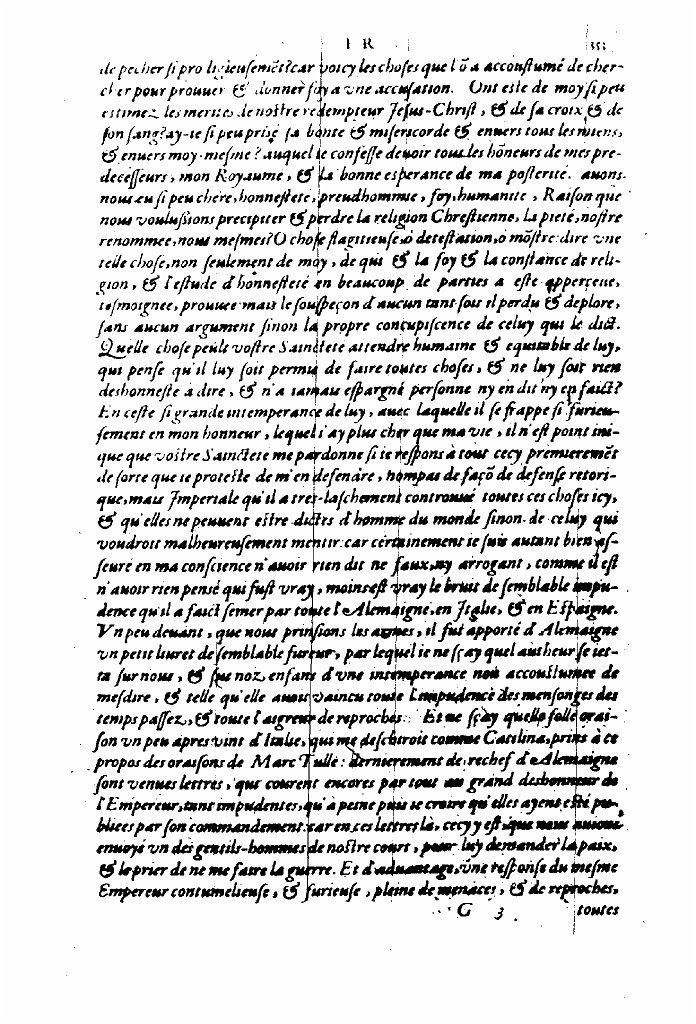 I R 353
de pecher si prodigieusemēt? car voicy les choses que l'ō a accoustumé de cher-
cher pour prouuer & donner foy a vne accusation. Ont esté de moy si peu
estimez les merites de nostre redempteur Jesus-Christ, & de sa croix & de
son sang? ay-ie si peu prisé sa bonté & misericorde & enuers tous les miens,
& enuers moy-mesme? auquel ie confesse deuoir tous les hōneurs de mes pre-
decesseurs, mon Royaume, & la bonne esperance de ma posterité. auons-
nous eu si peu chere, honnesteté, preudhommie, foy, humanité, Raison que
nous voulußions precipiter & perdre la religion Chrestienne, la pieté, nostre
renommee, nous mesmes? O chose flagitieuse, ô detestation, ô mōstre: dire vne
telle chose, non seulement de moy, de qui & la foy & la constance de reli-
gion, & l'estude d'honnesteté en beaucoup de parties a esté apperceue,
tesmoignee, prouuee mais le souspeçon d'aucun tant soit il perdu & deplore,
sans aucun argument sinon la propre concupiscence de celuy qui le dict.
Quelle chose peult vostre Saincteté attendre humaine & equitable de luy,
qui pense qu'il luy soit permis de faire toutes choses, & ne luy soit rien
deshonneste à dire, & n'a iamais espargné personne ny en dit ny en faict?
En ceste si grande intemperance de luy, auec laquelle il se frappe si furieu-
sement en mon honneur, lequel i'ay plus cher que ma vie, il n'est point ini-
que que vostre Saincteté me pardonne si ie respons à tout cecy premieremēt
de sorte que ie proteste de m'en defendre, non pas de façō de defense retori-
que, mais Imperiale qu'il a tres-laschement controuué toutes ces choses icy,
& qu'elles ne peuuent estre dictes d'homme du monde sinon de celuy qui
voudroit malheureusement mentir: car certainement ie suis autant bien as-
seuré en ma conscience n'auoir rien dit ne faux, ny arrogant, comme il est
n'auoir rien pensé qui fust vray, moins est vray le bruit de semblable impu-
dence qu'il a faict semer par toute l'Alemaigne, en Italie, & en Espaigne.
Vn peu deuant, que nous prinsions les armes, il fut apporté d'Alemaigne
vn petit liuret de semblable fureur, par lequel ie ne sçay quel autheur se iet-
ta sur nous, & sur noz enfans d'vne intemperance non accoustumee de
mesdire, & telle qu'elle auoit vaincu toute l'impudence des mensonges des
temps passez, & toute l'aigreur de reproches. Et ne sçay quelle folle orai-
son vn peu apres vint d'Italie, qui me descriuoit comme Catilina, prins à ce
propos des oraisons de Marc Tulle: dernierement de rechef d'Alemaigne
sont venues lettres, qui courent encores par tout au grand deshonneur de
l'Empereur, tant impudentes, qu'à peine puis ie croire qu'elles ayent esté pu-
bliees par son commandement: car en ces lettres là, cecy y est, que nous auions
enuoyé vn des gentils-hommes de nostre court, pour luy demander la paix,
& le prier de ne me faire la guerre. Et d'aduantage, vne response du mesme
Empereur contumelieuse, & furieuse, pleine de menaces, & de reproches,
G 3 toutes